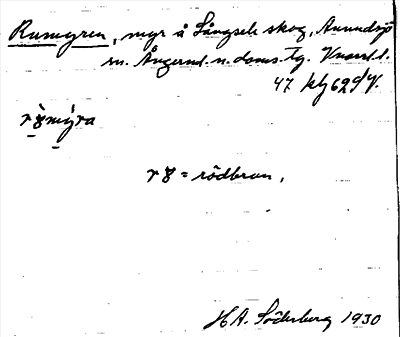 Rumyren, myr å Långsele skog, Anundsjö
sn. Ångerml. n. doms. tg. Kvarnl.
47 klg 629 V.
rꝋmýra
rꝋ = rödbrun,
H A. Söderberg 1930